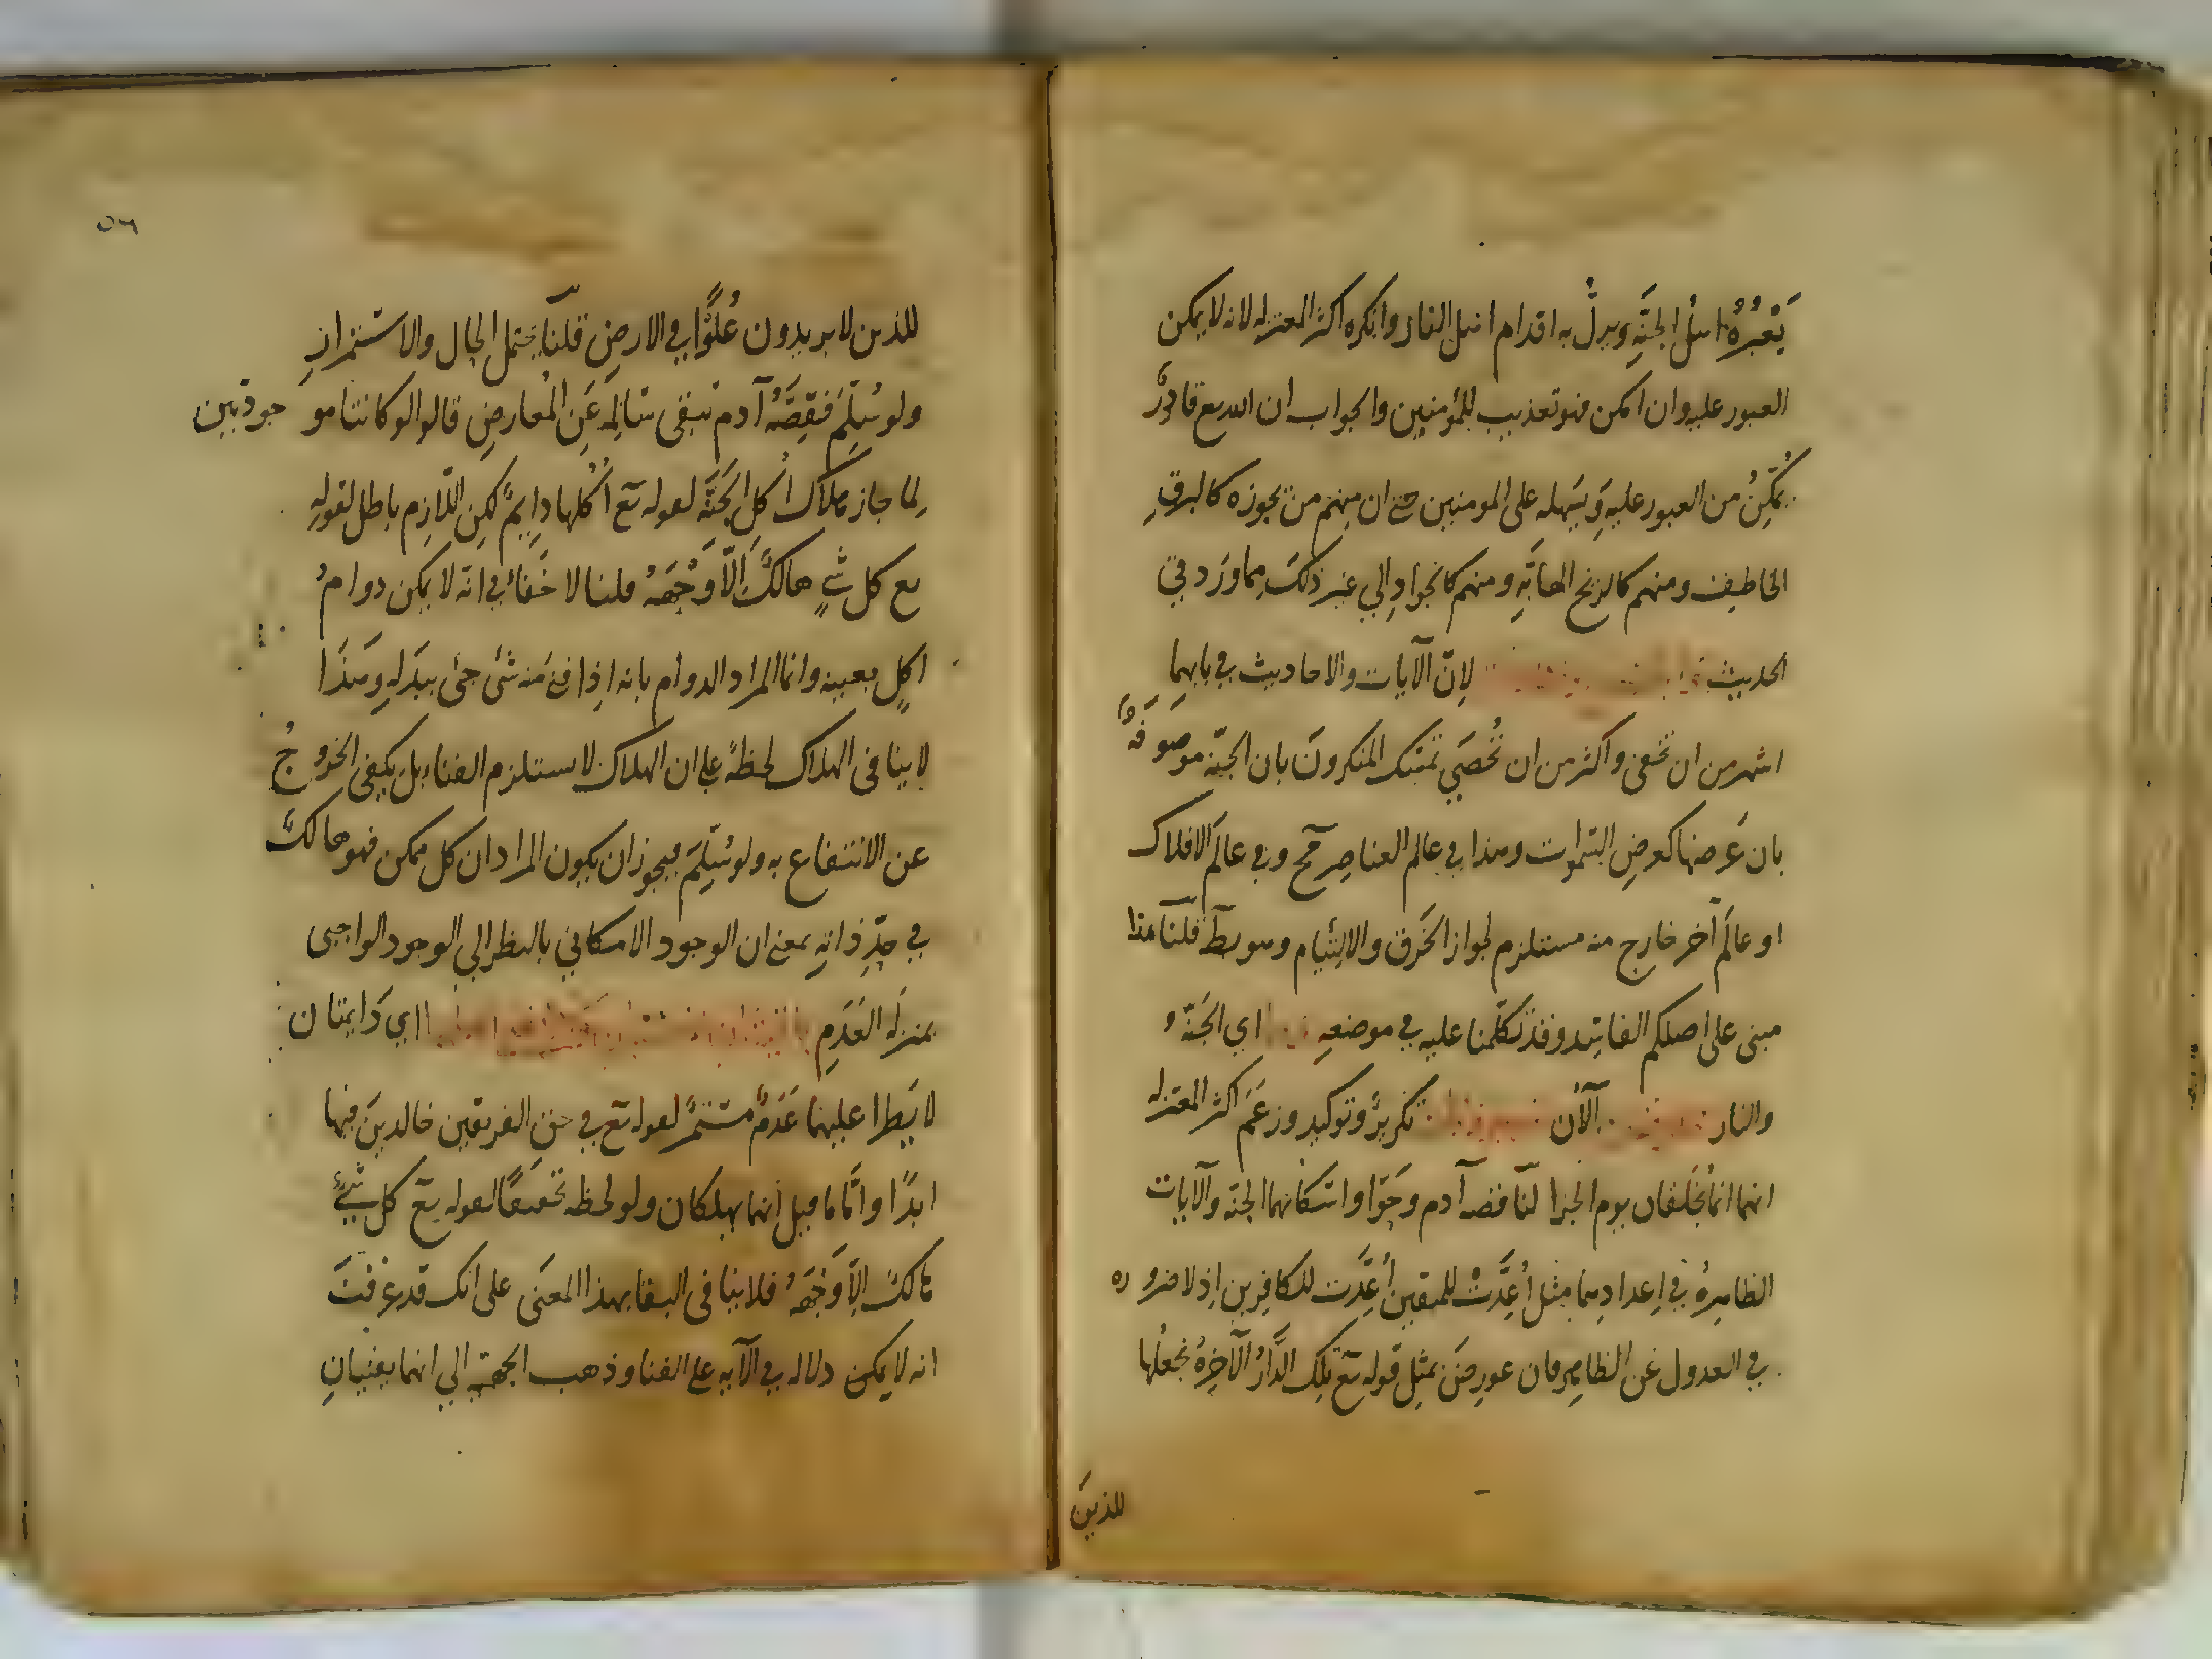 يَعْبُرُهُ اهلُ الجنَّةِ ويزلُّ به اقدام اهل النار وانكره اكثر المعتزله لانه لا يمكن
العبور عليه وان امكن فهو تعذيب للمؤمنين والجواب ان الله تع قادرٌ
يُمَكِّنُ من العبور عليهِ وَيسَهله على المومنين حتى ان مِنهم من يجوزه كالبرقِ
الخاطِف ومنهم كالريح الهابَّةِ ومنهم كالجوادِ الي غير ذلكَ مِما وَرَد في
الحديث لانّ الآيات والاحاديث في بابهما
اشهر من ان تخفى واكثر من ان تُحصَي تمسّك المنكرونَ بان الجنّة موصوفةٌ
بان عَرضها كعرضِ السَّموات وهذا في عالم العناصِر مح وفي عالَم الافلاك
او عالَم آخر خارج منه مستلزم لجواز الخَرق والالتِيام وهو بط قلنا هذا
مبنى على اصلكم الفاسِد وقد تكلّمنا عليه في موضعهِ اي الجَنّة و
والنار الآن تكريرٌ وتوكيد وزعَمَ اكثر المعتزله
انهما انما تُخلَقان يوم الجزا لنا قصه آدم وحَوّا واسكانهما الجنّة والآيات
الظاهِرةُ في اِعدادِهما مِثل اُعِدَّتْ للمتقين اُعِدَّت للكافِرين اِذ لا ضروره
في العدول عَن الظاهِر فان عورِضَ بمثلِ قوله تع تِلكَ الدَّارُ الآخِرةُ نجعلُها
للذينَ
٥٦
للذين لا يريدون عُلوًّا في الارضِ قلنا يحتمل الحال والاستمرار
ولو سُلِّمَ فقِصَّةُ آدم تبقى سالِمةً عَنِ المُعارضِ قالوا لو كانتا موجودتين
لما جاز هلاك اُكلِ الجَنَّة لقوله تع اُكُلها دايمٌ لكِن اللّازم باطل لقولهِ
تع كل شيٍ هالكٌ اِلّا وَجْهَهُ قلنا لا خَفاءَ في انّه لا يمكن دوامُ
اكلٍ بعينه وانما المراد الدوام بانه اِذا فنىَ مَنه شىٌ جىَ ببدَلهِ وهذَا
لا ينافى الهلاك لحظةً على ان الهلاك لا يستلزم الفناء بل يكفى الخروجُ
عن الانتفاع به ولو سُلِّمَ فيجوز ان يكون المراد ان كل ممكن فهو هالكٌ
في حدِّ ذاتهِ بمعنى ان الوجود الامكاني بالنظر الي الوجود الواجبى
بمنزلَة العَدَمِ اي دَايمتان
لا يَطرا عليهما عَدَمٌ مستمرٌ لقوله تع في حق الفريقين خالدينَ فيها
ابدًا وامَّا ما قيل انهما يهلكان ولو لحظه تحقيقًا لقوله تع كل شيٍ
هالكٌ اِلَّا وَجْهَهُ فلا ينافى البقا بهذا المعنَى على انك قد عرفتَ
انه لا يمكن دلاله في الآيه على الفنا وذهب الجهميّه الي انهما يفنيانِ